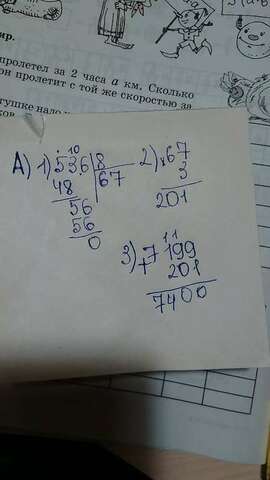 пролетел за 2 часа a км. Сколько
он пролетит с той же скоростью за
тушке надо
А) 1) 536 | 8
67
48
56
56
0
2) × 67
3
201
3) + 7199
201
7400